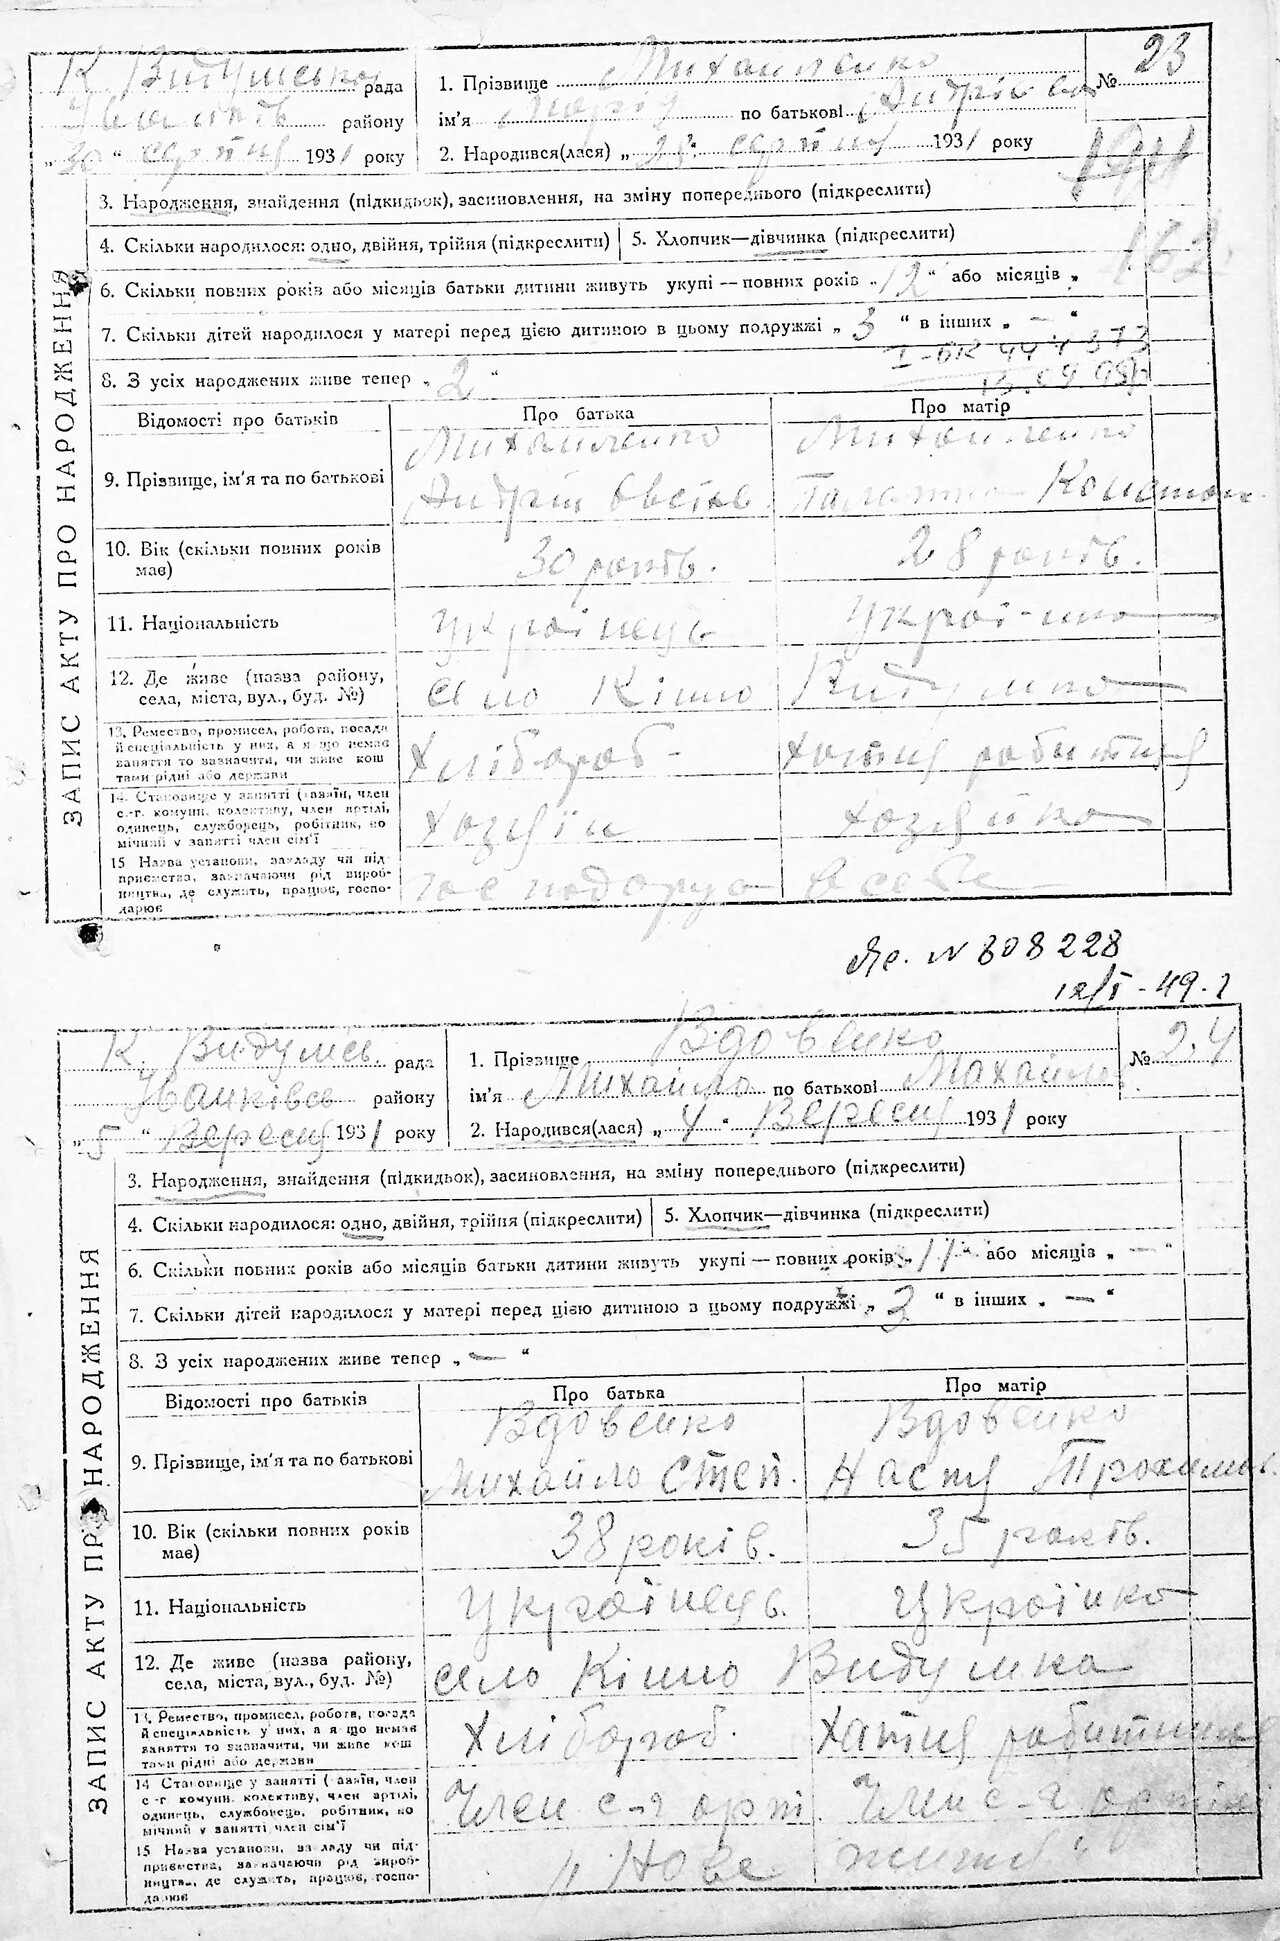 К. Видумська рада
району
„30“ серпня 1931 року
1. Прізвище Михайленко
ім'я Марія по батькові Андріїв
2. Народився(лася) „ серпня 1931 року
№ 23
3. Народження, знайдення (підкидьок), засиновлення, на зміну попереднього (підкреслити)
4. Скільки народилося: одно, двійня, трійня (підкреслити)
5. Хлопчик—дівчинка (підкреслити)
6. Скільки повних років або місяців батьки дитини живуть укупі — повних років „12“ або місяців „
7. Скільки дітей народилося у матері перед цією дитиною в цьому подружжі „3“ в інших „—“
8. З усіх народжених живе тепер „2“
Відомості про батьків
Про батька
Про матір
9. Прізвище, ім'я та по батькові
Михайленко
Андрій Овсієв
Михайленко
Констан
10. Вік (скільки повних років має)
30 років.
28 років.
11. Національність
Українець
Україн-ка
12. Де живе (назва району, села, міста, вул., буд. №)
село Кінно Видумка
13. Ремество, промисел, робота, посада й спеціяльність у них, а якщо немає заняття то зазначити, чи живе коштами рідні або держави
Хлібороб
хатня робитниця
14. Становище у занятті (хазяїн, член с.-г. комуни, колективу, член артілі, одинець, службовець, робітник, комічний у занятті член сім'ї
хозяїн
хозяйка
15 Назва установи, закладу чи підприємства, зазначаючи рід виробництва, де служить, працює, господарює
господарує в себе
ЗАПИС АКТУ ПРО НАРОДЖЕННЯ
№ 308228
12/I - 49.
К. Видумсь. рада
Іванківсь району
„5“ Вересня 1931 року
1. Прізвище Вдовенко
ім'я Михайло по батькові Махайлов
2. Народився(лася) „4“ Вересня 1931 року
№ 24
3. Народження, знайдення (підкидьок), засиновлення, на зміну попереднього (підкреслити)
4. Скільки народилося: одно, двійня, трійня (підкреслити)
5. Хлопчик—дівчинка (підкреслити)
6. Скільки повних років або місяців батьки дитини живуть укупі — повних років „11“ або місяців „—“
7. Скільки дітей народилося у матері перед цією дитиною в цьому подружжі „3“ в інших „—“
8. З усіх народжених живе тепер „—“
Відомості про батьків
Про батька
Про матір
9. Прізвище, ім'я та по батькові
Вдовенко
Михайло Степ
Вдовенко
Настя Трохимов.
10. Вік (скільки повних років має)
38 років.
35 років.
11. Національність
Українець.
Українка
12. Де живе (назва району, села, міста, вул., буд. №)
село Кінно Видумка
13. Ремество, промисел, робота, посада й спеціяльність у них, а якщо немає заняття то зазначити, чи живе коштами рідні або держави
Хлібороб.
хатня робитниця
14 Становище у занятті (хазяїн, член с.-г. комуни, колективу, член артілі, одинець, службовець, робітник, комічний у занятті член сім'ї
Член с-г арт.
Член с-г артіл
15 Назва установи, закладу чи підприємства, зазначаючи рід виробництва, де служить, працює, господарює
„Нове життя“
ЗАПИС АКТУ ПРО НАРОДЖЕННЯ